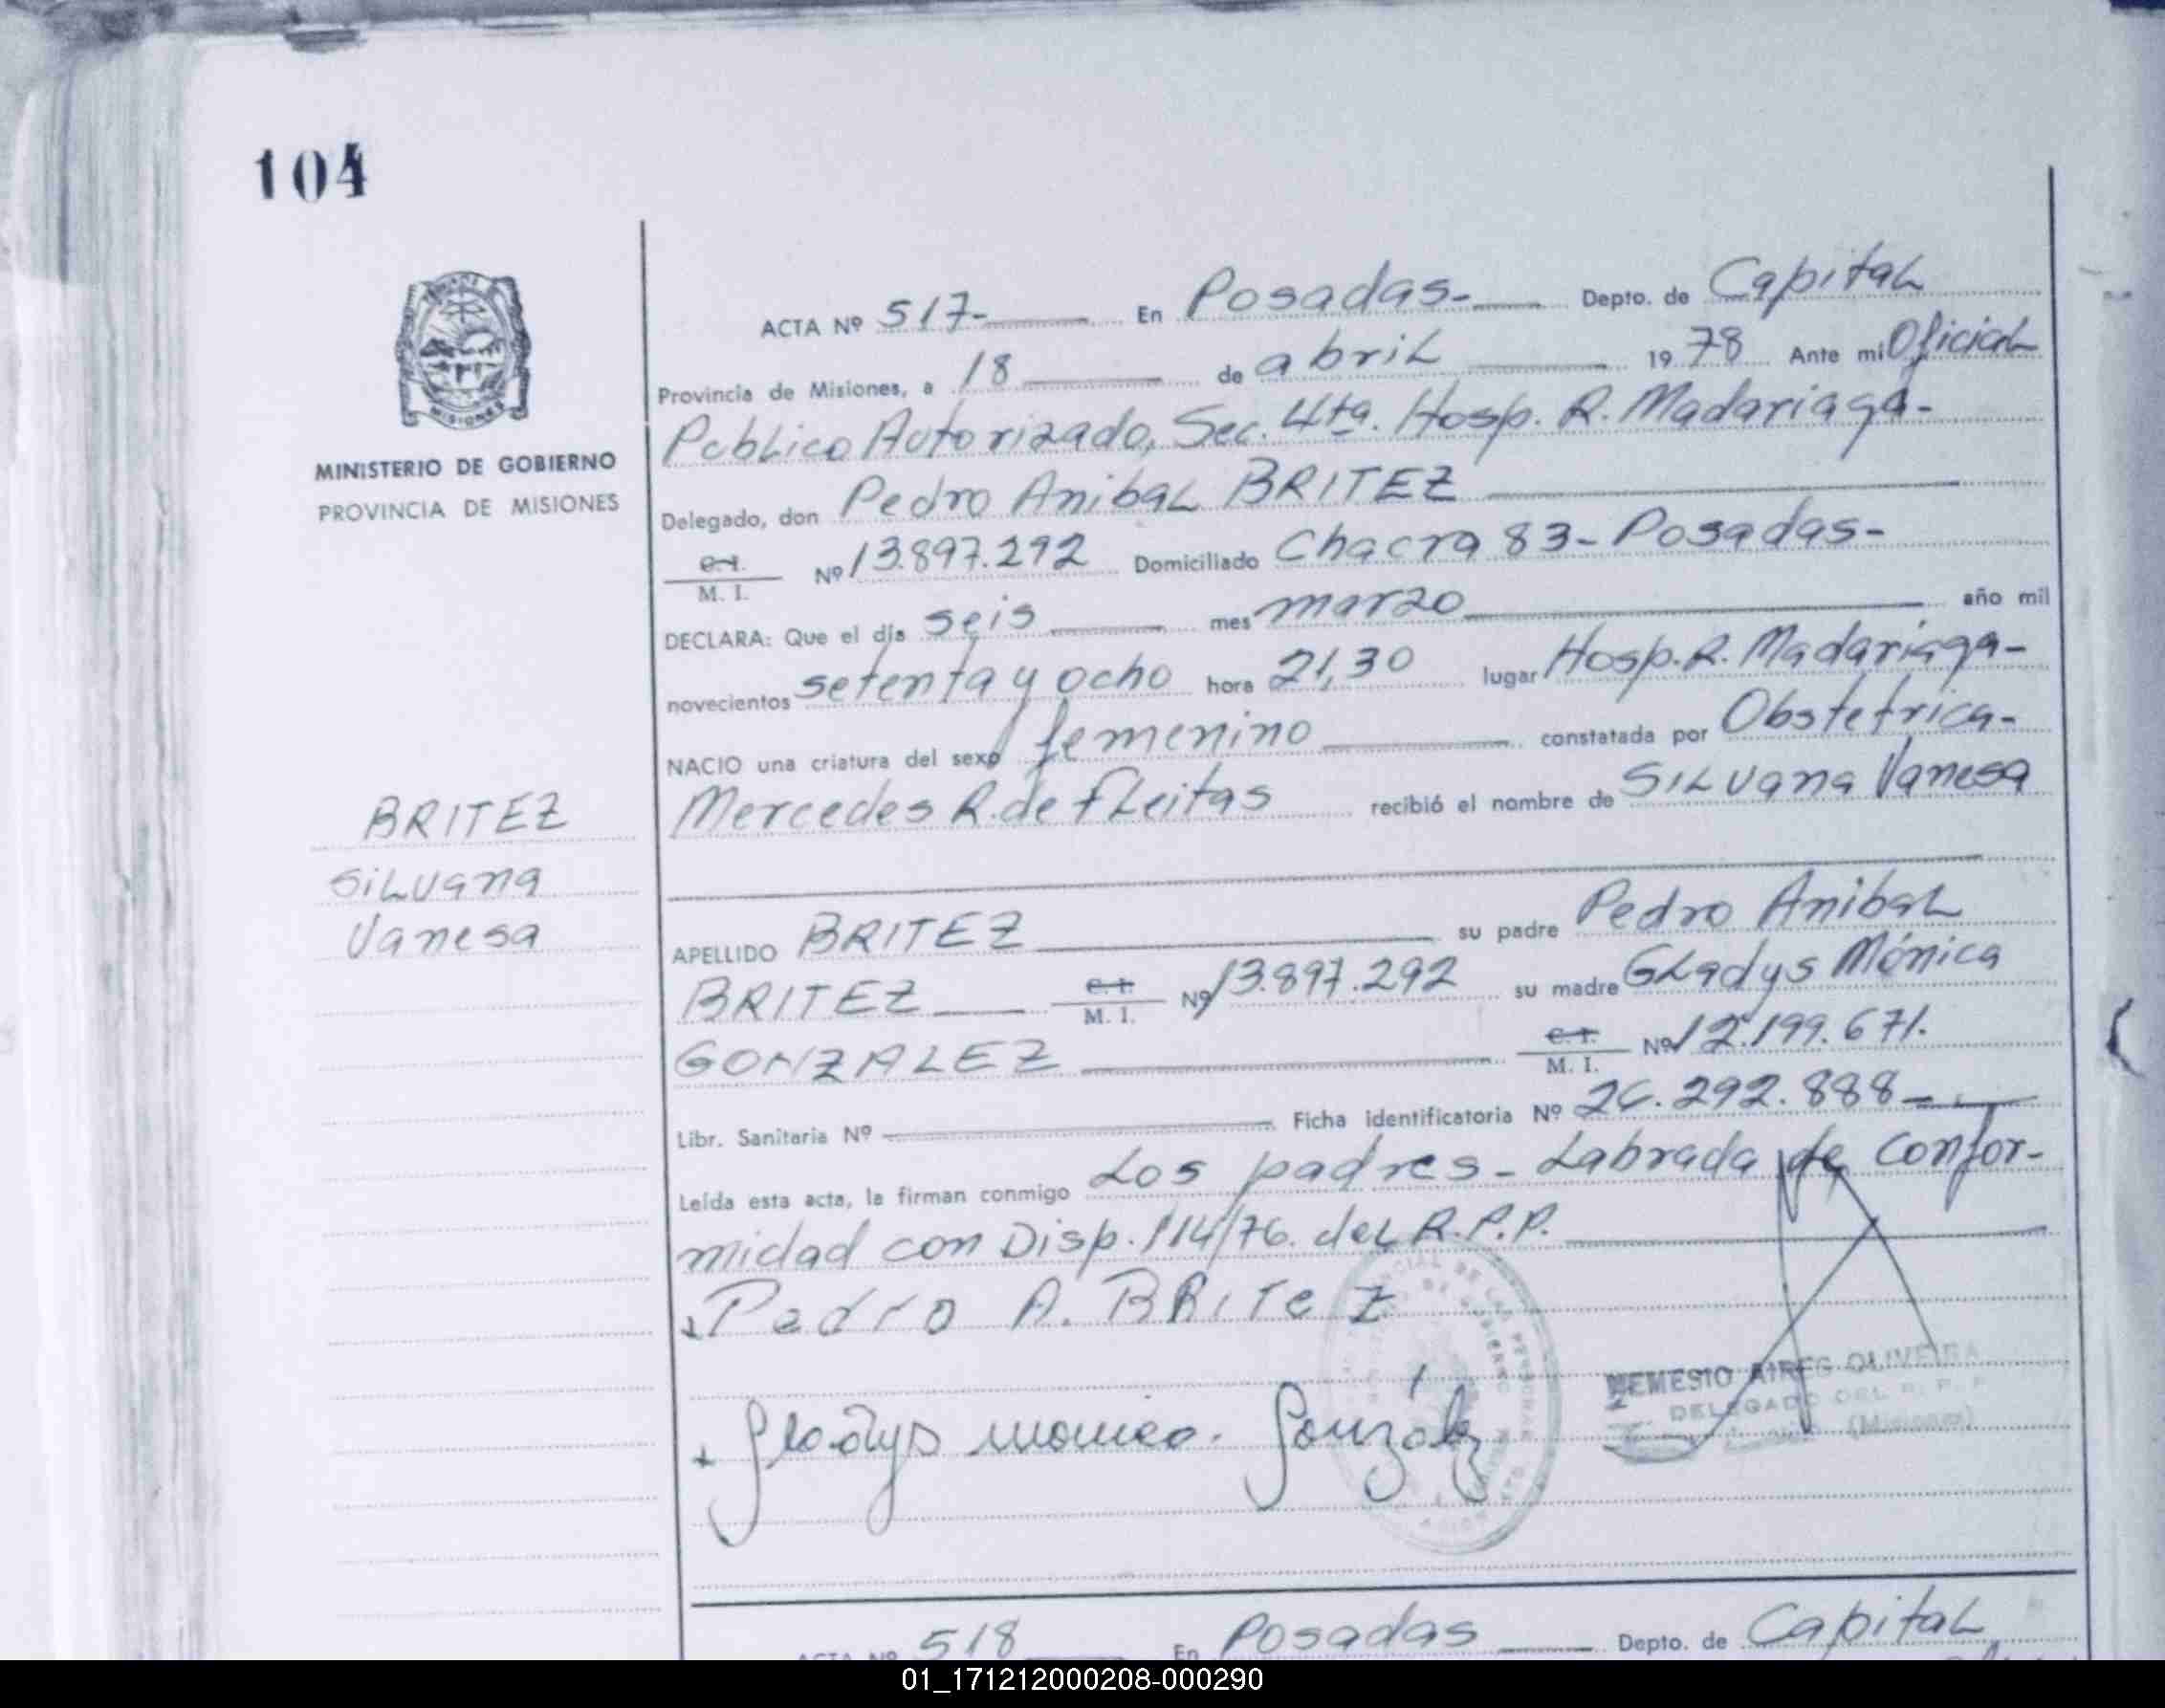 104
MISIONES
MINISTERIO DE GOBIERNO
PROVINCIA DE MISIONES
BRITEZ
SILVANA
Vanesa
ACTA Nº 517- En Posadas- Depto. de Capital
Provincia de Misiones, a 18 de abril 1978 Ante mi Oficial
Publico Autorizado, Sec. 4ta. Hosp. R. Madariaga-
Delegado, don Pedro Anibal BRITEZ
C.I. M. I. Nº 13.897.292 Domiciliado Chacra 83- Posadas-
DECLARA: Que el día seis mes marzo año mil
novecientos setenta y ocho hora 21,30 lugar Hosp. R. Madariaga-
NACIO una criatura del sexo femenino constatada por Obstetrica-
Mercedes R. de Fleitas recibió el nombre de SILVANA Vanesa
APELLIDO BRITEZ su padre Pedro Anibal
BRITEZ C.I. M. I. Nº 13.897.292 su madre Gladys Mónica
GONZALEZ C.I. M. I. Nº 12.199.671.
Libr. Sanitaria Nº Ficha identificatoria Nº 26.292.888-
Leída esta acta, la firman conmigo Los padres- Labrada de confor-
midad con Disp. 114/76. del R.P.P.
Pedro A. BRITEZ
Gladys Monica. González
NEMESIO AIRES OLIVEIRA
DELEGADO DEL R. P. P.
(Misiones)
ACTA Nº 518 En Posadas Depto. de Capital
01_171212000208-000290